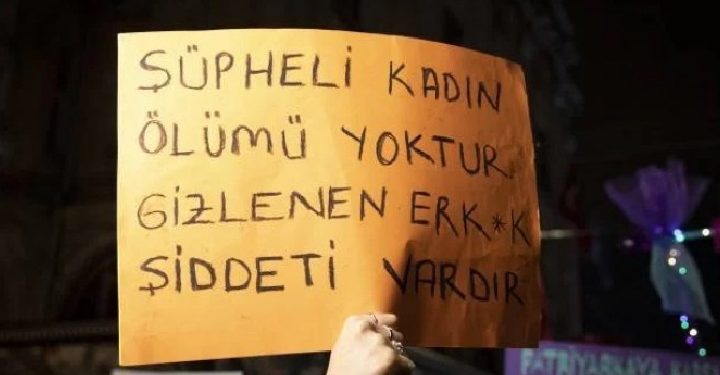 ŞÜPHELİ KADIN
ÖLÜMÜ YOKTUR.
GİZLENEN ERK**K
ŞİDDETİ VARDIR
PATRİYARKAYA